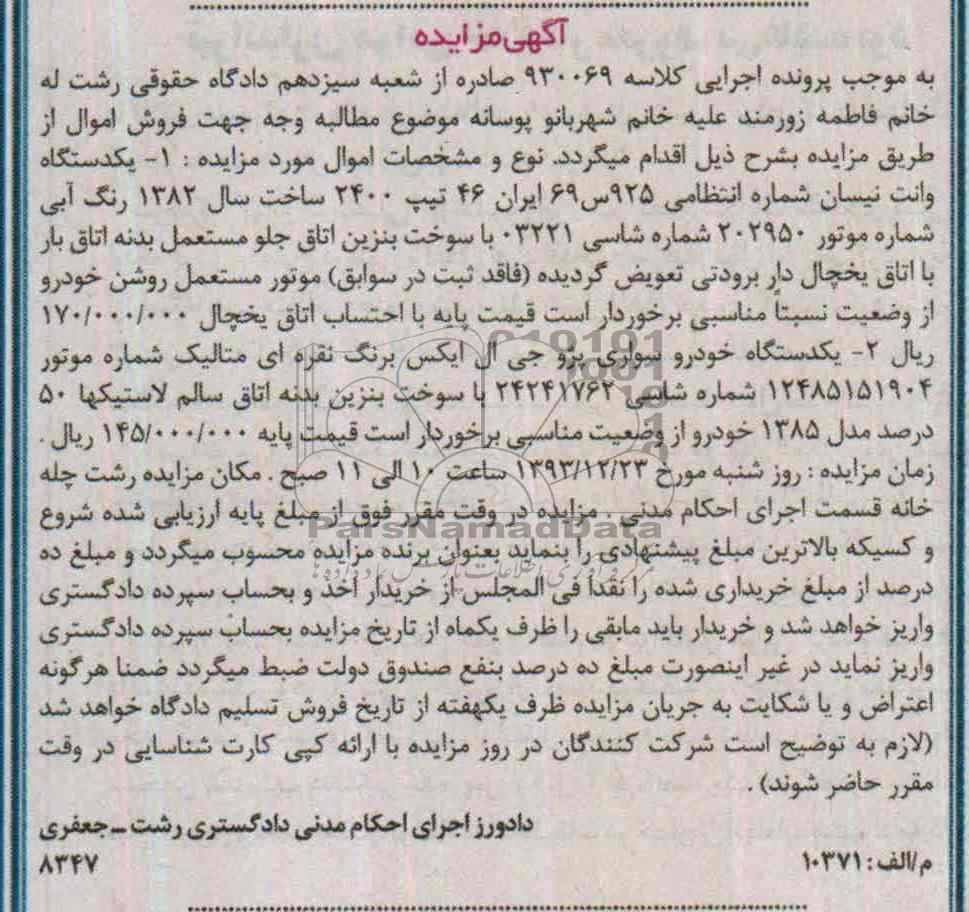 آگهی مزایده
به موجب پرونده اجرایی کلاسه ۹۳۰۰۶۹ صادره از شعبه سیزدهم دادگاه حقوقی رشت له
خانم فاطمه زورمند علیه خانم شهربانو پوسانه موضوع مطالبه وجه جهت فروش اموال از
طریق مزایده بشرح ذیل اقدام میگردد. نوع و مشخصات اموال مورد مزایده : ۱- یکدستگاه
وانت نیسان شماره انتظامی ۹۲۵س۶۹ ایران ۴۶ تیپ ۲۴۰۰ ساخت سال ۱۳۸۲ رنگ آبی
شماره موتور ۲۰۲۹۵۰ شماره شاسی ۰۳۲۲۱ با سوخت بنزین اتاق جلو مستعمل بدنه اتاق بار
با اتاق یخچال دار برودتی تعویض گردیده (فاقد ثبت در سوابق) موتور مستعمل روشن خودرو
از وضعیت نسبتاً مناسبی برخوردار است قیمت پایه با احتساب اتاق یخچال ۱۷۰/۰۰۰/۰۰۰
ریال ۲- یکدستگاه خودرو سواری پژو جی ال ایکس برنگ نقره ای متالیک شماره موتور
۱۲۴۸۵۱۵۱۹۰۴ شماره شاسی ۲۴۲۴۱۷۶۲ با سوخت بنزین بدنه اتاق سالم لاستیکها ۵۰
درصد مدل ۱۳۸۵ خودرو از وضعیت مناسبی برخوردار است قیمت پایه ۱۴۵/۰۰۰/۰۰۰ ریال .
زمان مزایده : روز شنبه مورخ ۱۳۹۳/۱۲/۲۳ ساعت ۱۰ الی ۱۱ صبح . مکان مزایده رشت چله
خانه قسمت اجرای احکام مدنی . مزایده در وقت مقرر فوق از مبلغ پایه ارزیابی شده شروع
ParsNamadData
و کسیکه بالاترین مبلغ پیشنهادی را بنماید بعنوان برنده مزایده محسوب میگردد و مبلغ ده
درصد از مبلغ خریداری شده را نقداً فی المجلس از خریدار اخذ و بحساب سپرده دادگستری
واریز خواهد شد و خریدار باید مابقی را ظرف یکماه از تاریخ مزایده بحساب سپرده دادگستری
واریز نماید در غیر اینصورت مبلغ ده درصد بنفع صندوق دولت ضبط میگردد ضمنا هرگونه
اعتراض و یا شکایت به جریان مزایده ظرف یکهفته از تاریخ فروش تسلیم دادگاه خواهد شد
(لازم به توضیح است شرکت کنندگان در روز مزایده با ارائه کپی کارت شناسایی در وقت
مقرر حاضر شوند) .
دادورز اجرای احکام مدنی دادگستری رشت ــ جعفری
م/الف : ۱۰۳۷۱
۸۳۴۷